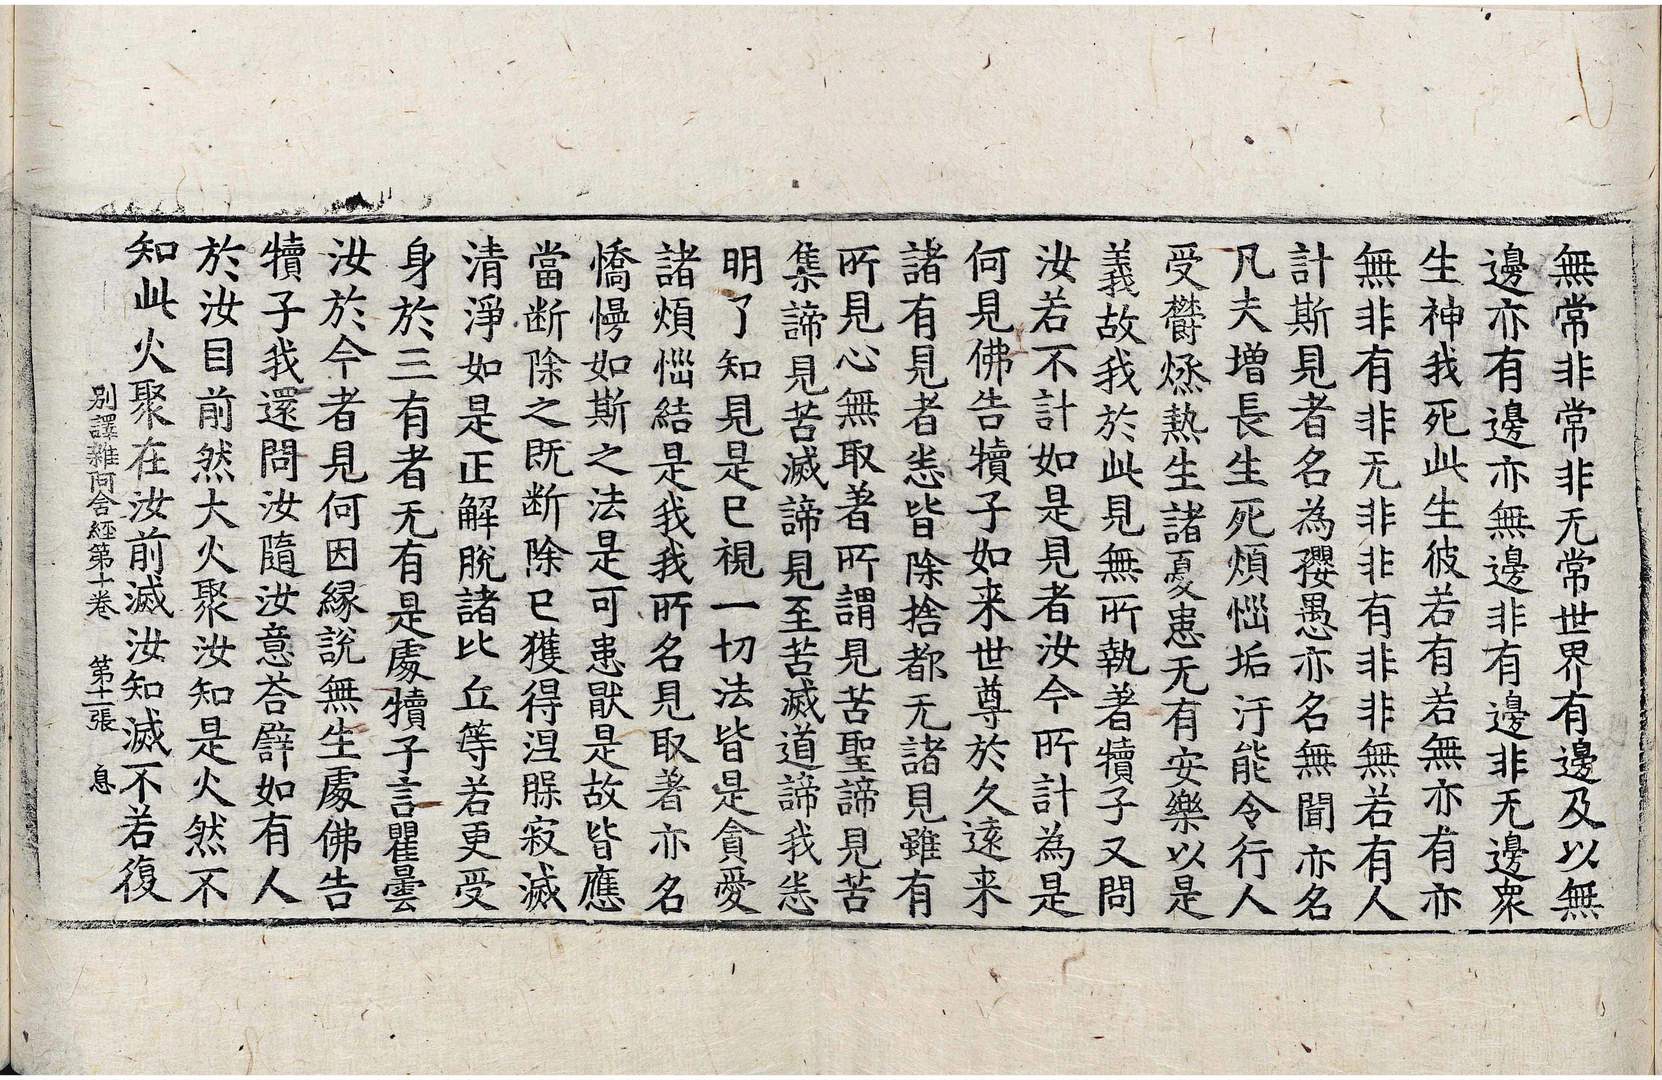 無常非常非无常世界有邊及以無
邊亦有邊亦無邊非有邊非无邊衆
生神我死此生彼若有若無亦有亦
無非有非无非非有非非無若有人
計斯見者名為孾愚亦名無聞亦名
凡夫增長生死煩惱垢汙能令行人
受欝烝熱生諸憂患无有安樂以是
義故我於此見無所執著犢子又問
汝若不計如是見者汝今所計為是
何見佛告犢子如来世尊於久遠来
諸有見者悉皆除捨都无諸見雖有
所見心無取著所謂見苦聖諦見苦
集諦見苦滅諦見至苦滅道諦我悉
明了知見是已視一切法皆是貪愛
諸煩惱結是我我所名見取著亦名
憍慢如斯之法是可患猒是故皆應
當断除之既断除已獲得涅槃寂滅
清淨如是正解脫諸比丘等若更受
身於三有者无有是處犢子言瞿曇
汝於今者見何因緣說無生處佛告
犢子我還問汝隨汝意荅譬如有人
於汝目前然大火聚汝知是火然不
知此火聚在汝前滅汝知滅不若復
別譯雜阿含經第十卷 第十一張 息